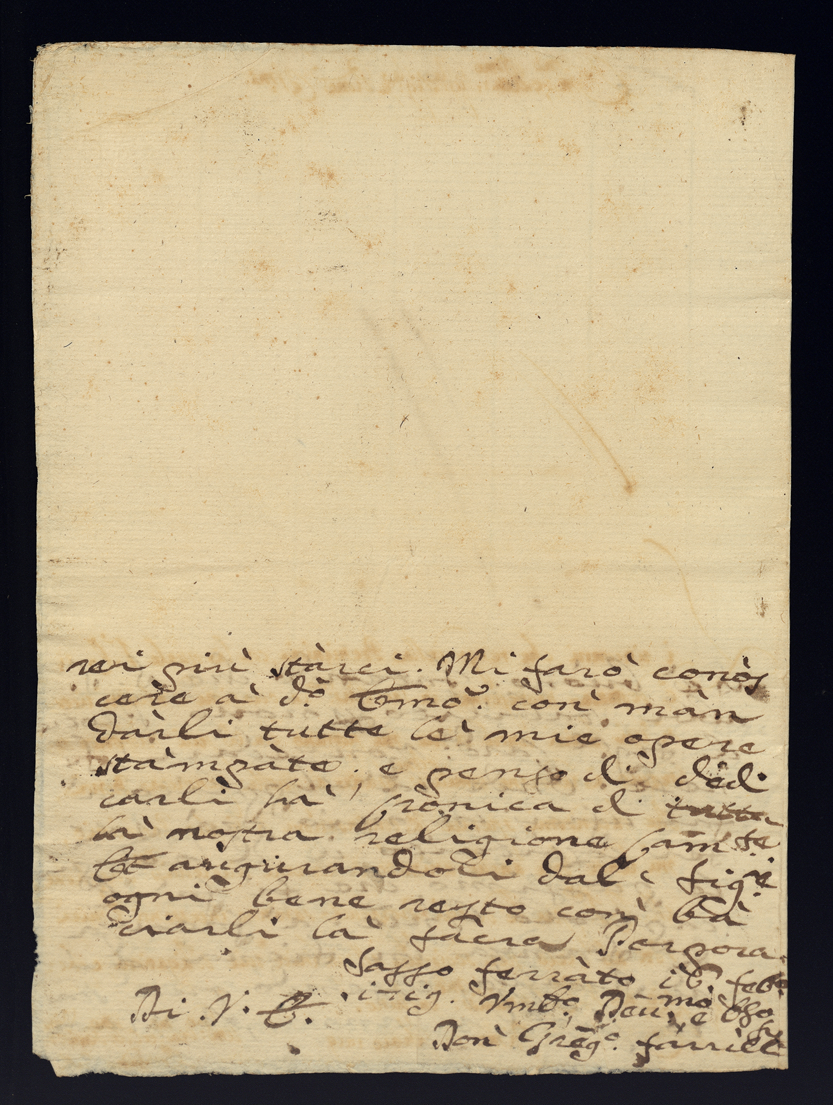 rei più stàrci. Mi farò conòs
cere à d.º Emõ. con màn
dàrli tutte le mie opere
stàmpàte, e penso di dedi
carli la Crònica di tutta
là nostra religione Cam
Et auguràndoli dal Sig.
ogni bene resto con bà
ciarli là sàcra Porpora.
Sasso ferràto febo
Di V. E. Umo Deũ.mo e Osso
Don Grego.